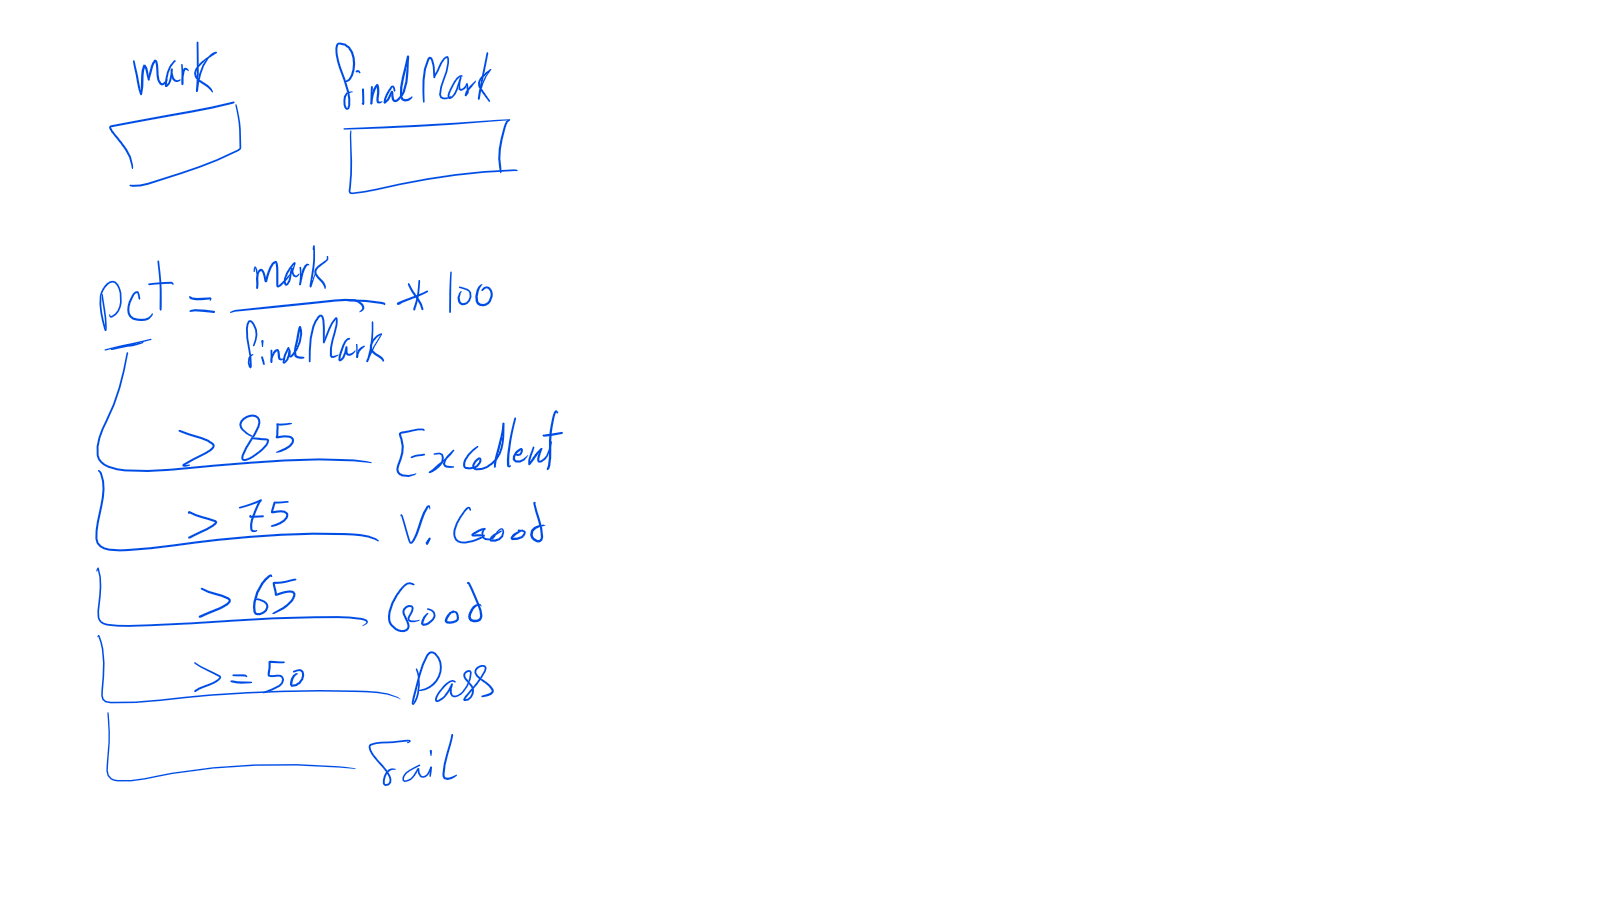 mark finalMark
pct = mark / finalMark * 100
> 85 Excellent
> 75 V. Good
> 65 Good
>= 50 Pass
Fail